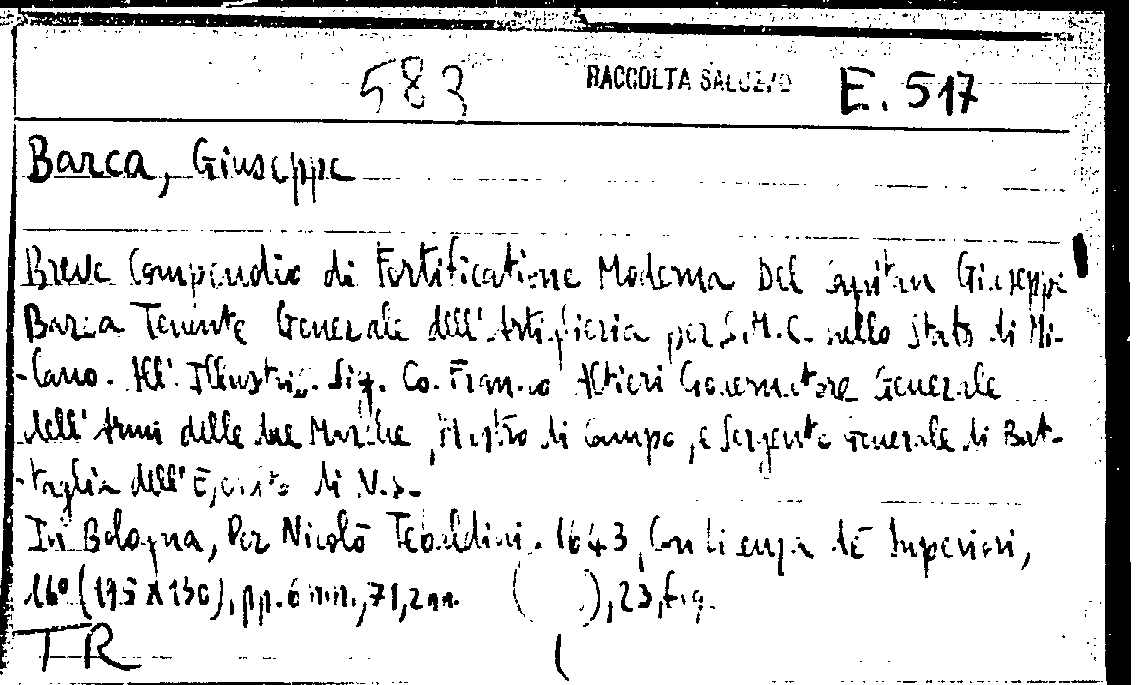 583 RACCOLTA SALUZZO E. 517
Barca, Giuseppe
Breve Compendio di Fortificatione Moderna Del Capitan Giuseppe
Barca Tenente Generale dell'Artiglieria per S.M.C. nello stato di Mi-
-lano. All'. Illustriss. Sig. Co. Franco Altieri Governatore Generale
dell'Armi delle due Marche, Mastro di Campo, e Sergente Generale di Bat-
-taglia dell'Esercito di N.S.
In Bologna, Per Nicolò Tebaldini. 1643, Con licenza de Superiori,
16° (195 x 130), pp. 6 nnn., 71, 2 nn. ( ), 23, fig.
TR